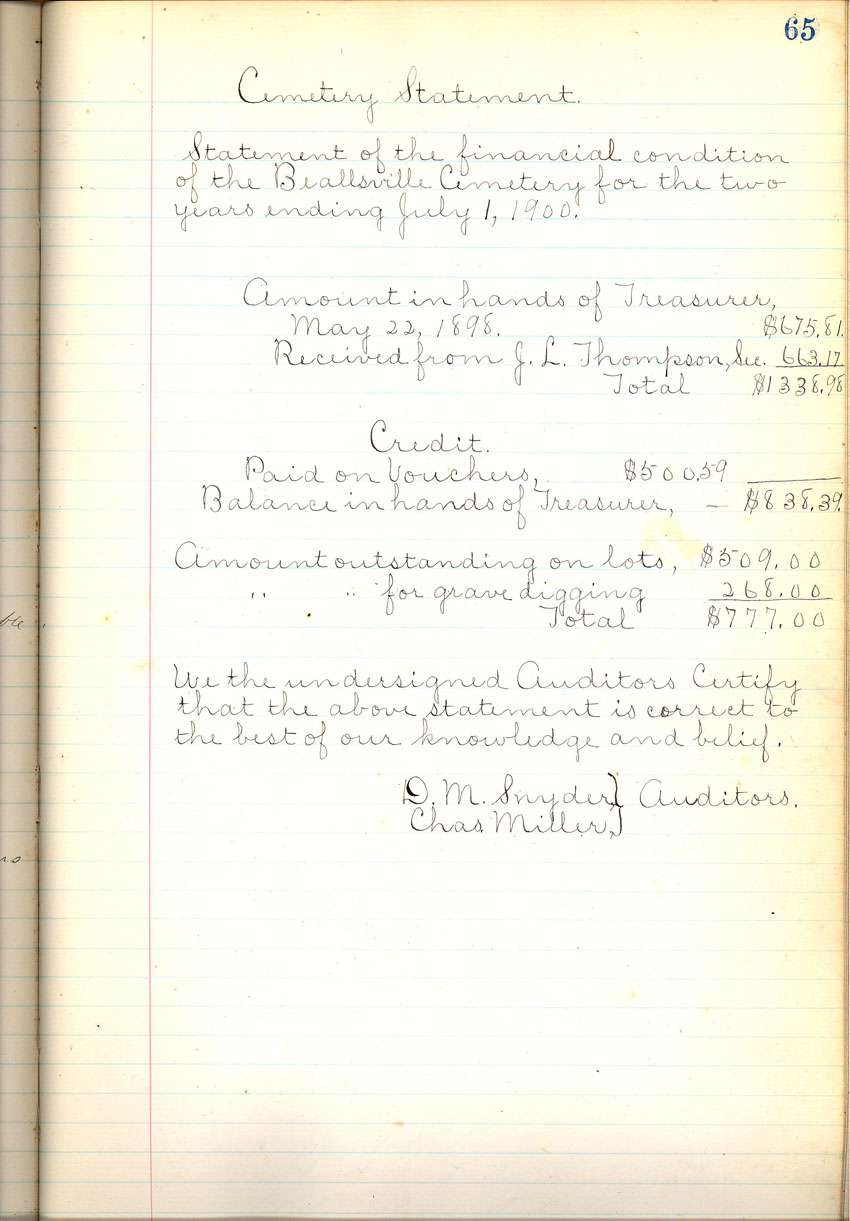 65
Cemetery Statement.
Statement of the financial condition
of the Beallsville Cemetery for the two
years ending July 1, 1900.
Amount in hands of Treasurer,
May 22, 1898. $675.81.
Received from J. L. Thompson, Sec. 663.17
Total $1338.98
Credit.
Paid on Vouchers, $500.59
Balance in hands of Treasurer, — $838.39.
Amount outstanding on lots, $509.00
" " for grave digging 268.00
Total $777.00
We the undersigned Auditors Certify
that the above statement is correct to
the best of our knowledge and belief.
D. M. Snyder } Auditors.
Chas Miller, }